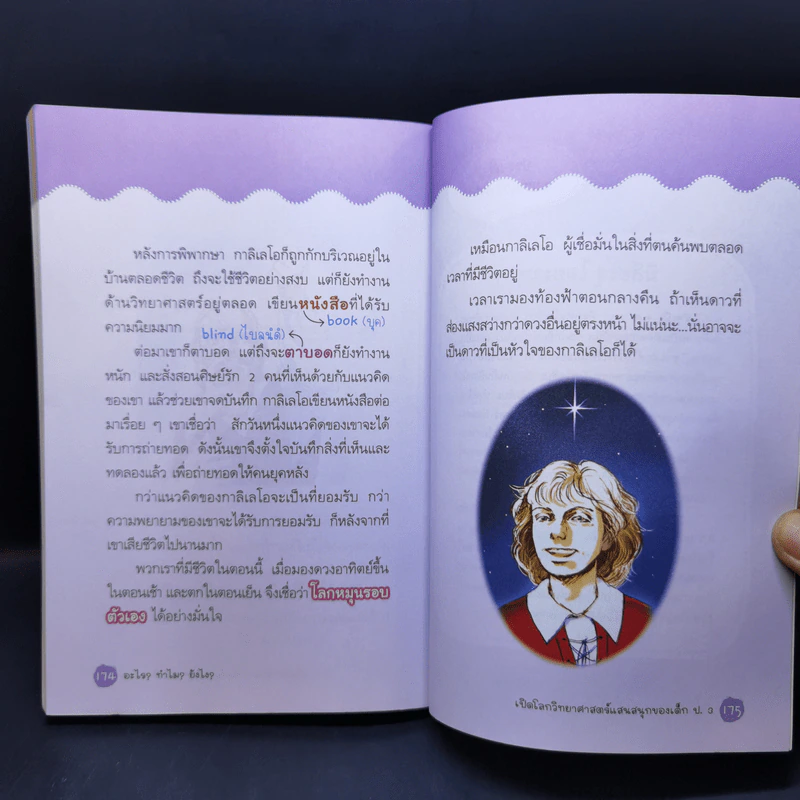 หลังการพิพากษา กาลิเลโอก็ถูกกักบริเวณอยู่ใน
บ้านตลอดชีวิต ถึงจะใช้ชีวิตอย่างสงบ แต่ก็ยังทำงาน
ด้านวิทยาศาสตร์อยู่ตลอด เขียนหนังสือที่ได้รับ
ความนิยมมาก
book (บุค)
blind (ไบลน์ด์)
ต่อมาเขาก็ตาบอด แต่ถึงจะตาบอดก็ยังทำงาน
หนัก และสั่งสอนศิษย์รัก 2 คนที่เห็นด้วยกับแนวคิด
ของเขา แล้วช่วยเขาจดบันทึก กาลิเลโอเขียนหนังสือต่อ
มาเรื่อย ๆ เขาเชื่อว่า สักวันหนึ่งแนวคิดของเขาจะได้
รับการถ่ายทอด ดังนั้นเขาจึงตั้งใจบันทึกสิ่งที่เห็นและ
ทดลองแล้ว เพื่อถ่ายทอดให้คนยุคหลัง
กว่าแนวคิดของกาลิเลโอจะเป็นที่ยอมรับ กว่า
ความพยายามของเขาจะได้รับการยอมรับ ก็หลังจากที่
เขาเสียชีวิตไปนานมาก
พวกเราที่มีชีวิตในตอนนี้ เมื่อมองดวงอาทิตย์ขึ้น
ในตอนเช้า และตกในตอนเย็น จึงเชื่อว่าโลกหมุนรอบ
ตัวเอง ได้อย่างมั่นใจ
174 อะไร? ทำไม? ยังไง?
เหมือนกาลิเลโอ ผู้เชื่อมั่นในสิ่งที่ตนค้นพบตลอด
เวลาที่มีชีวิตอยู่
เวลาเรามองท้องฟ้าตอนกลางคืน ถ้าเห็นดาวที่
ส่องแสงสว่างกว่าดวงอื่นอยู่ตรงหน้า ไม่แน่นะ...นั่นอาจจะ
เป็นดาวที่เป็นหัวใจของกาลิเลโอก็ได้
เปิดโลกวิทยาศาสตร์แสนสนุกของเด็ก ป. 3 175